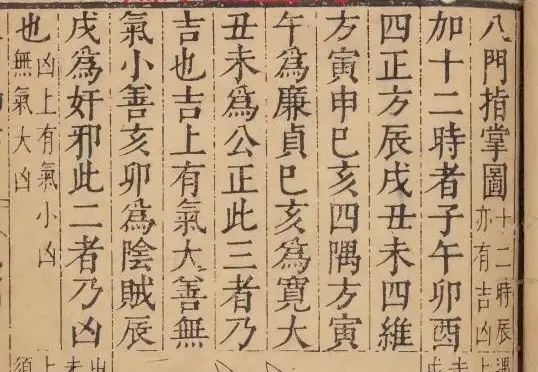 八門指掌圖十二時辰亦有吉凶
加十二時者子午卯酉
四正方辰戌丑未四維
方寅申巳亥四隅方寅
午為廉貞巳亥為寬大
丑未為公正此三者乃
吉也吉上有氣大善無
氣小善亥卯為陰賊辰
戌為奸邪此二者乃凶
也凶上有氣小凶無氣大凶